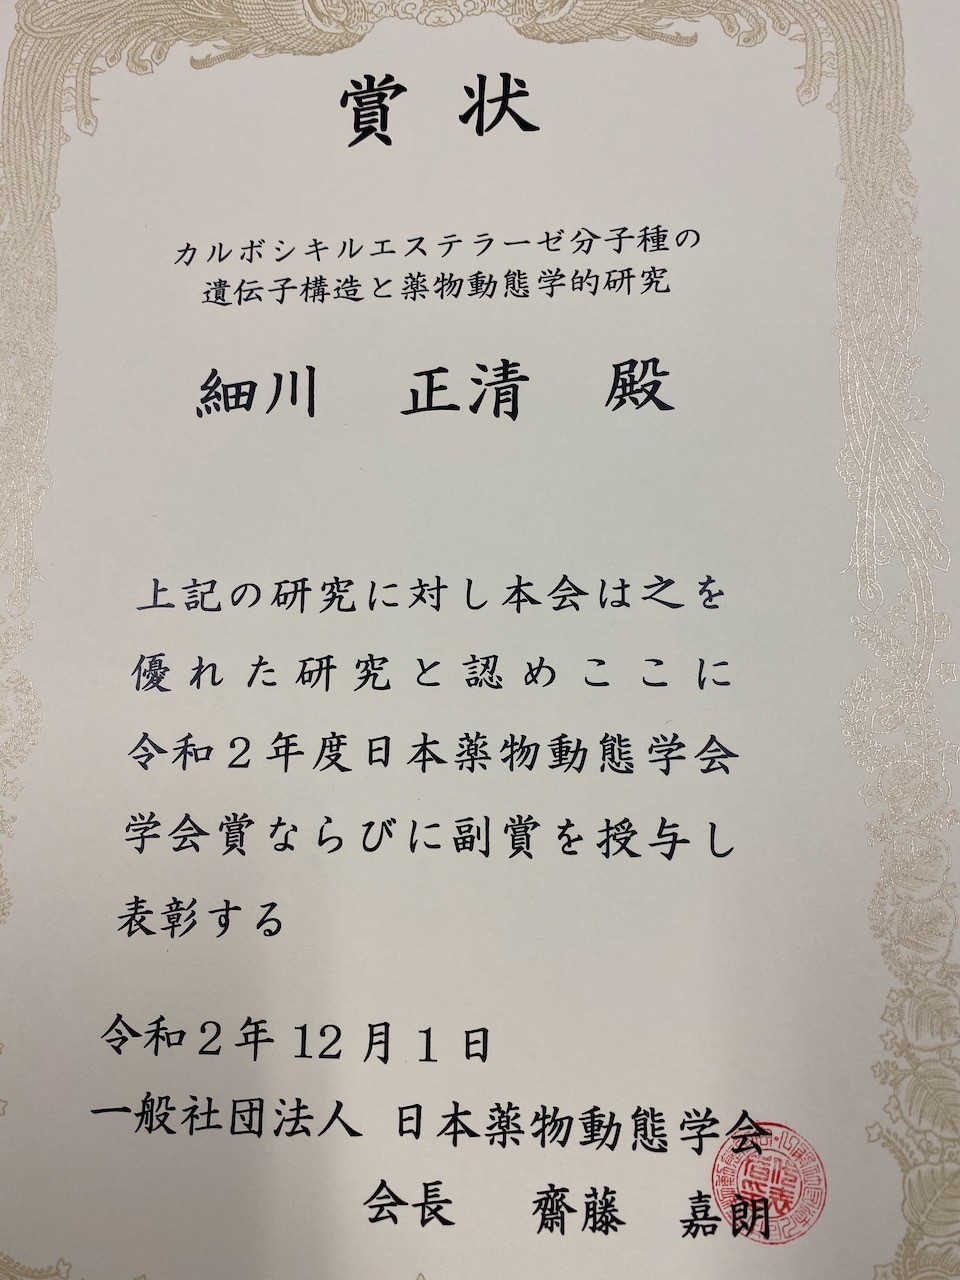 賞状
カルボシキルエステラーゼ分子種の
遺伝子構造と薬物動態学的研究
細川 正清 殿
上記の研究に対し本会は之を
優れた研究と認めここに
令和2年度日本薬物動態学会
学会賞ならびに副賞を授与し
表彰する
令和2年12月1日
一般社団法人 日本薬物動態学会
会長 齋藤 嘉朗